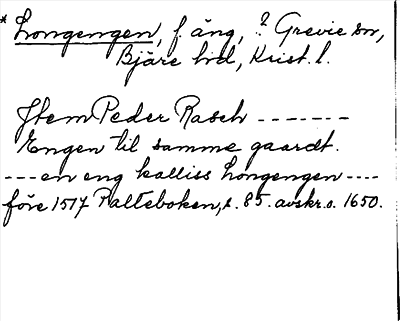 * Longengen, f. äng, ? Grevie sn,
Bjäre hd, Krist. l.
Jtem Peder Rasch -------
Engen til samme gaardt.
--- en eng kalliss Longengen ----
före 1517 Palteboken, s. 85. avskr. o. 1650.